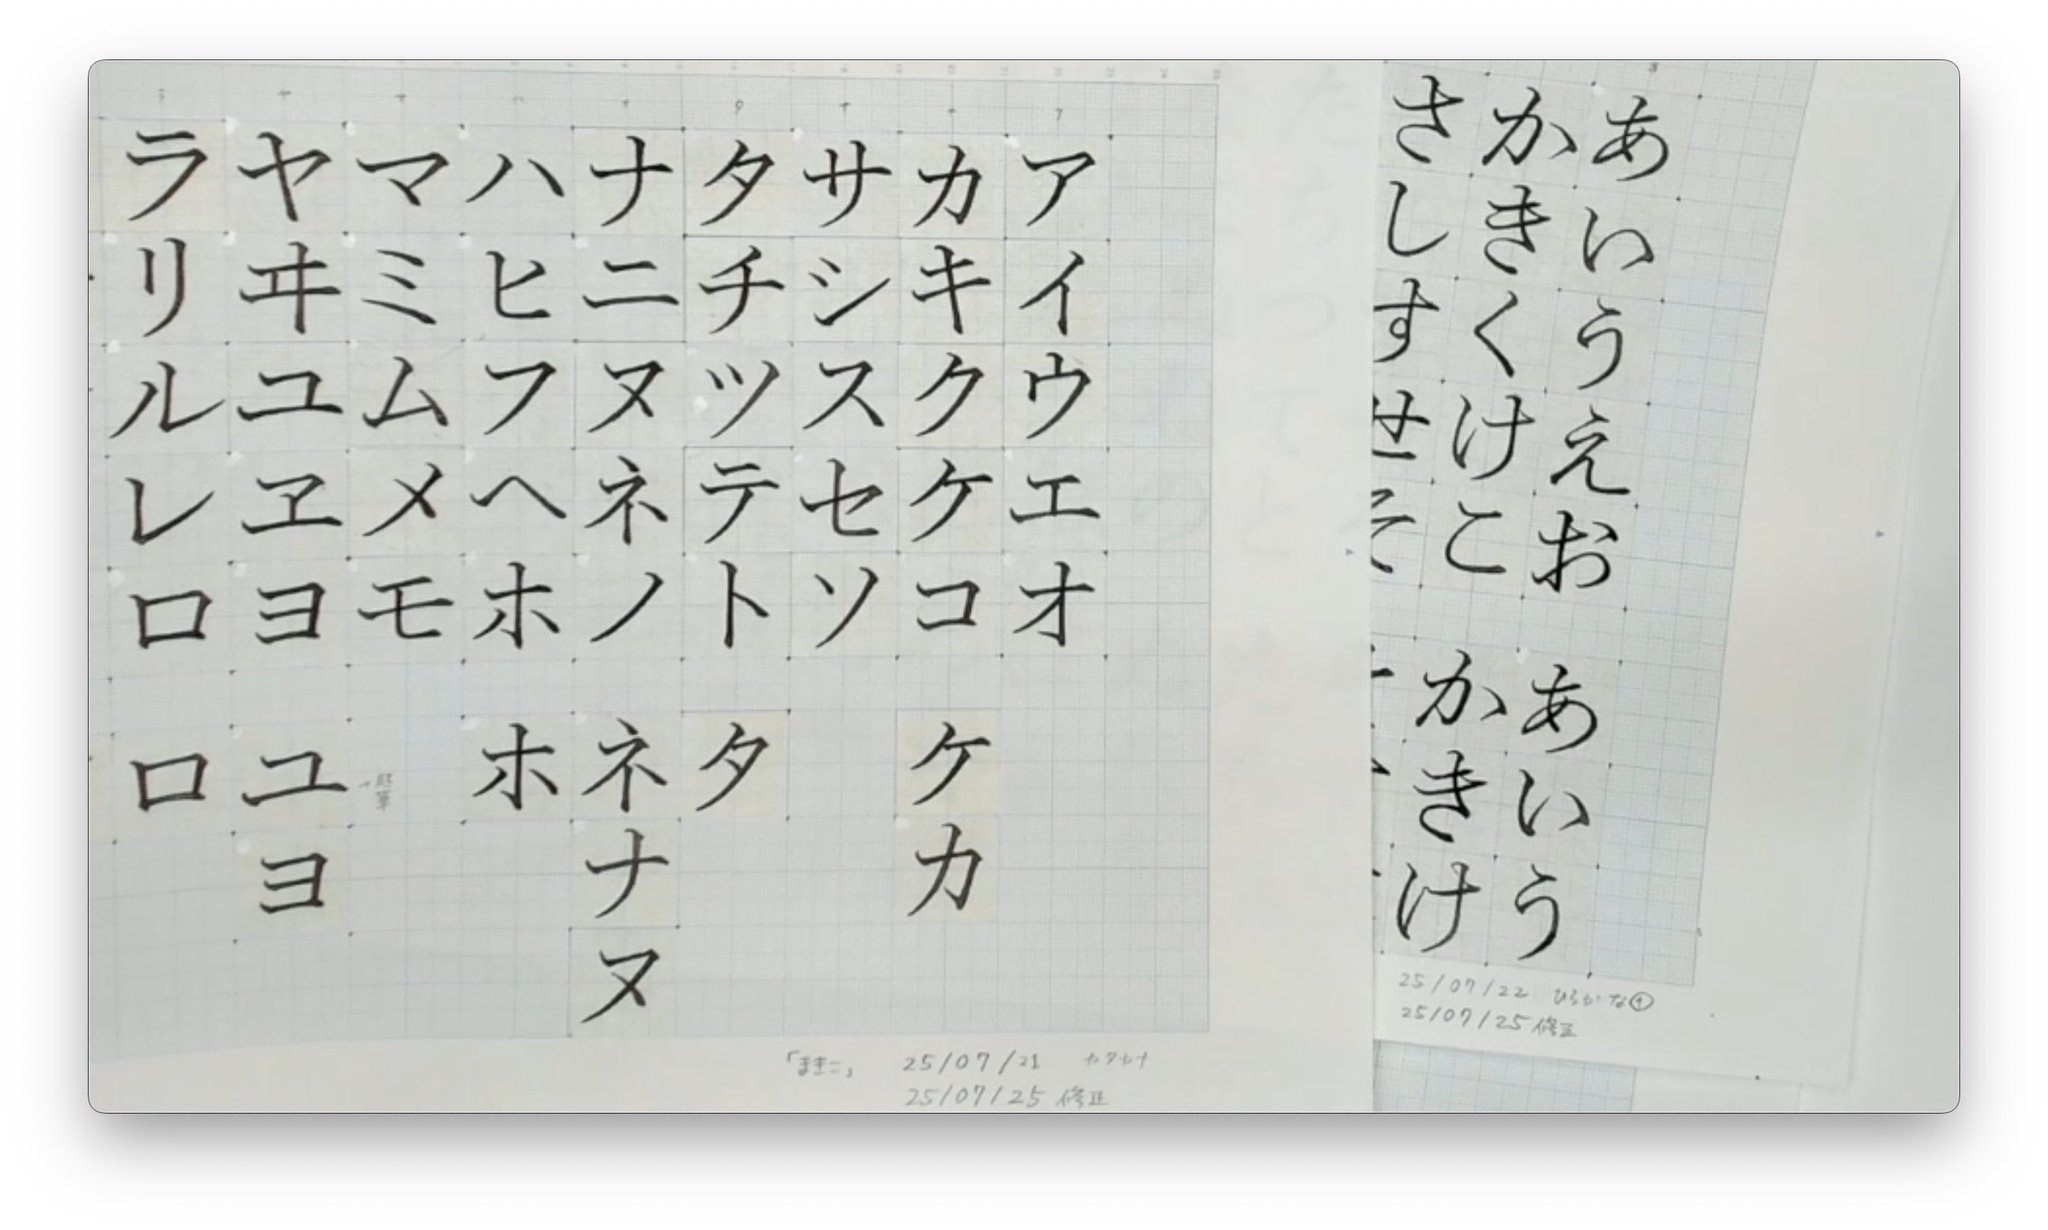 あいうえお
かきくけこ
さしすせそ
あいう
かきけ
25/07/22 ひらがな①
25/07/25 修正
アイウエオ
カキクケコ
サシスセソ
タチツテト
ナニヌネノ
ハヒフヘホ
マミムメモ
ヤヰユヱヨ
ラリルレロ
ケカ
タ
ネナヌ
ホ
ユヨ
ロ
「まきこ」 25/07/21 カタカナ
25/07/25 修正